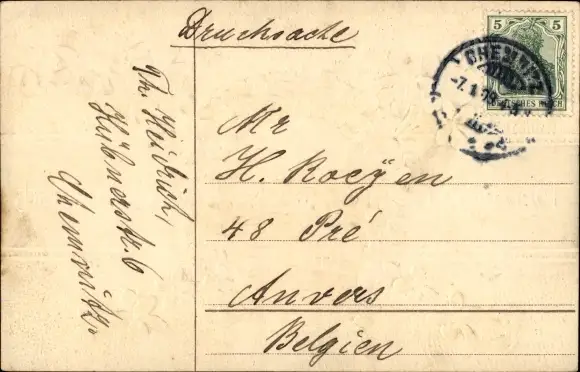 Drucksache
5 5
DEUTSCHES REICH
CHEMNITZ
-7.1.
Th. Heidrich,
Hübnerstr. 6
Chemnitz.
Mr
H. Roeÿen
48 Pré
Anvers
Belgien